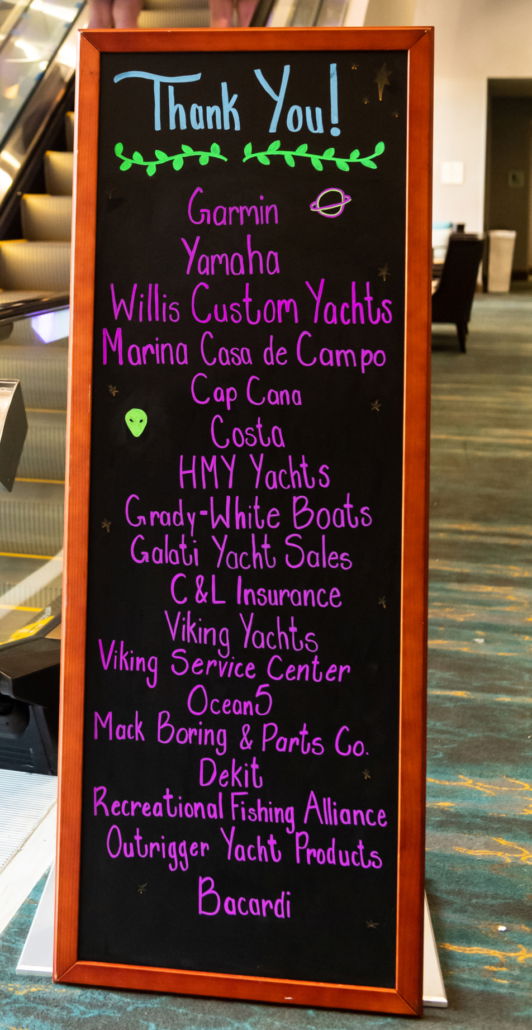 Thank You!
Garmin
Yamaha
Willis Custom Yachts
Marina Casa de Campo
Cap Cana
Costa
HMY Yachts
Grady-White Boats
Galati Yacht Sales
C&L Insurance
Viking Yachts
Viking Service Center
Ocean5
Mack Boring & Parts Co.
Dekit
Recreational Fishing Alliance
Outrigger Yacht Products
Bacardi